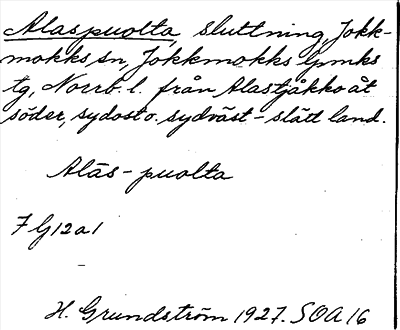 Alaspuolta, sluttning, Jokk-
mokks sn, Jokkmokks lpmks
tg, Norrb. l. från Alastjåkko åt
söder, sydost o. sydväst - slätt land.
Alās - puolta
7 G 12 a 1
H. Grundström 1927. SOA 16